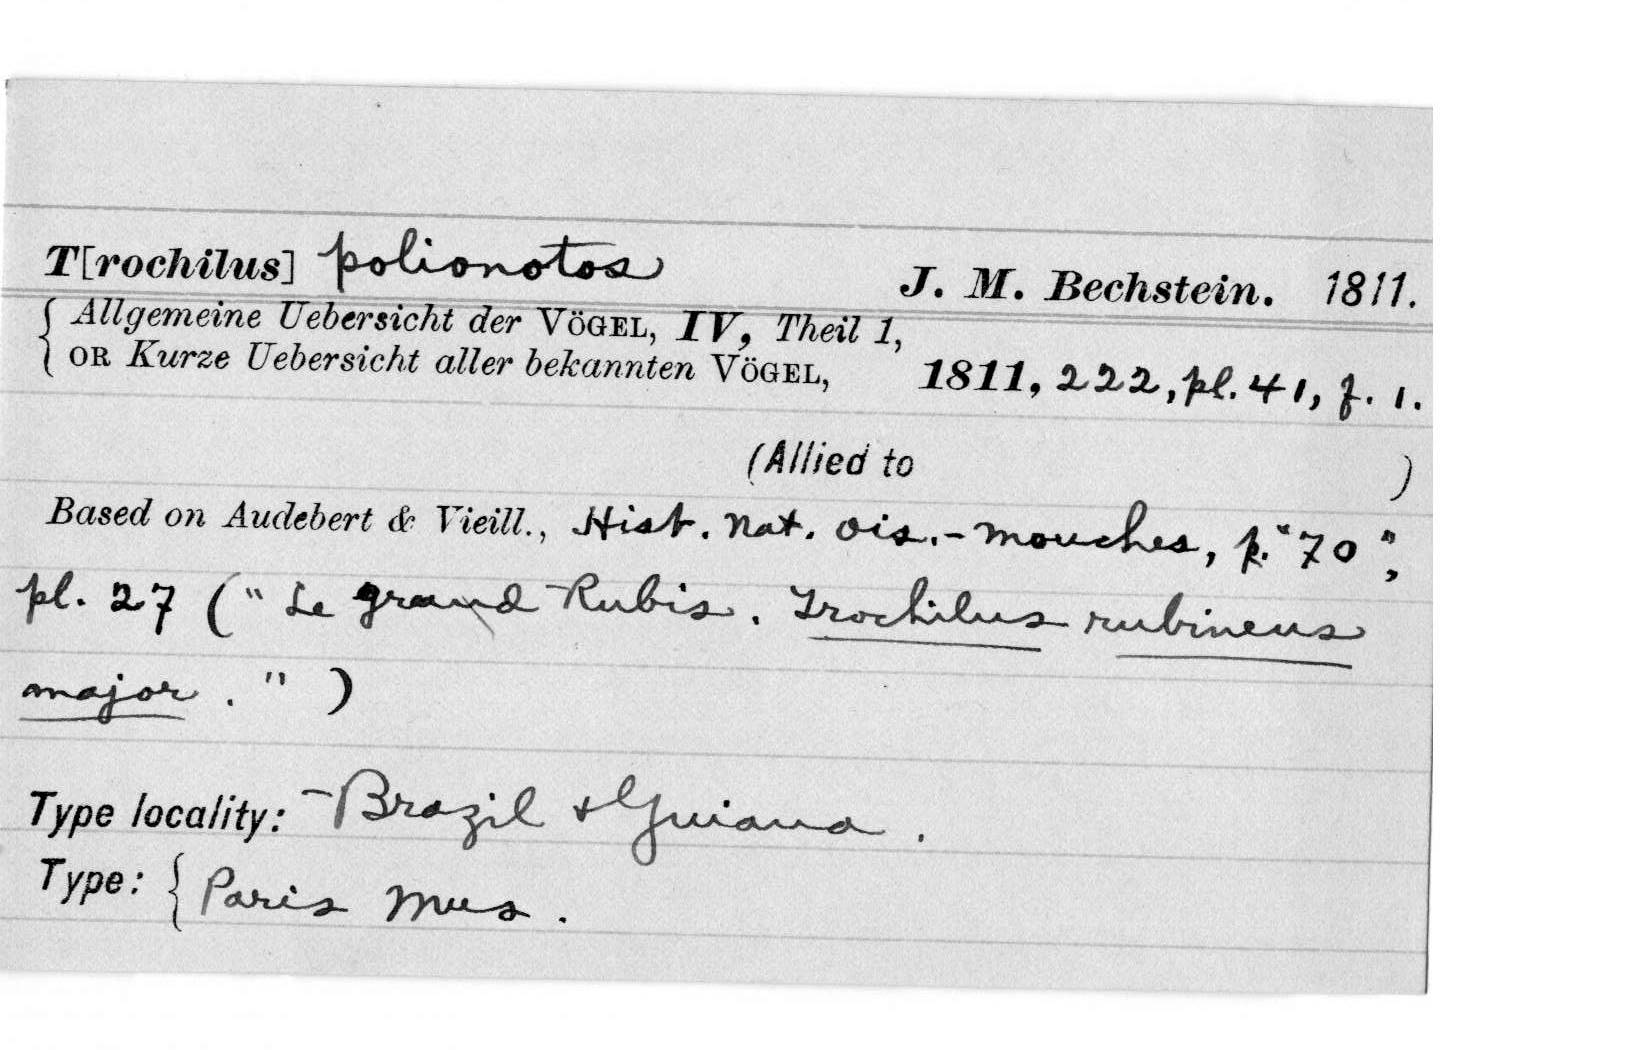 T[rochilus] polionotos J. M. Bechstein. 1811.
{ Allgemeine Uebersicht der VÖGEL, IV, Theil 1,
OR Kurze Uebersicht aller bekannten VÖGEL, 1811, 222, pl. 41, f. 1.
(Allied to )
Based on Audebert & Vieill., Hist. Nat. ois.-mouches, p. "70",
pl. 27 ("Le grand Rubis. Trochilus rubineus
major.")
Type locality: Brazil & Guiana.
Type: { Paris Mus.